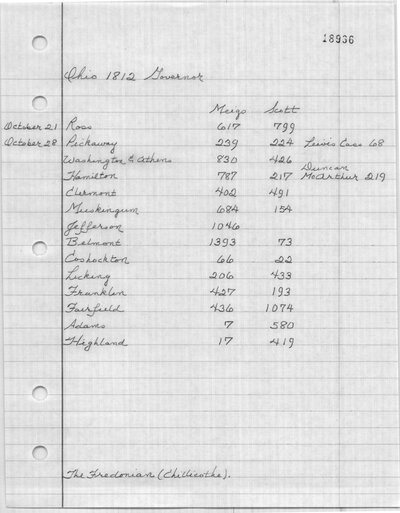 18936
Ohio 1812 Governor
Meigs Scott
October 21 Ross 617 799
October 28 Pickaway 239 224 Lewis Cass 68
Washington & Athens 830 426
Hamilton 787 217 Duncan McArthur 219
Clermont 402 491
Muskingum 684 154
Jefferson 1046
Belmont 1393 73
Coshockton 66 22
Licking 206 433
Franklin 427 193
Fairfield 436 1074
Adams 7 580
Highland 17 419
The Fredonian (Chillicothe).